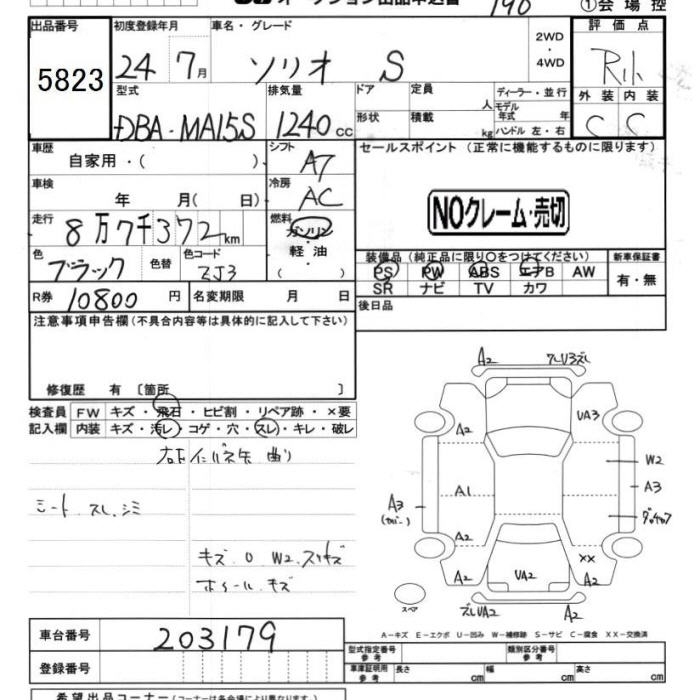 190
①会場控
出品番号 初度登録年月 車名・グレード 評価点
5823 24 7月 ソリオ S 2WD・4WD
型式 排気量 ドア 定員 人 ディーラー・並行
モデル年式 年 外装 内装
DBA-MA15S 1240cc 形状 積載 kg ハンドル 左・右 C C
車歴 シフト セールスポイント (正常に機能するものに限ります)
自家用・( ) AT
車検 冷房
年 月( 日) AC NOクレーム・売切
走行 燃料
8万7千372km ガソリン・軽油
色 色替 色コード 装備品 (純正品に限り○をつけてください) 新車保証書
ブラック ZJ3 ( ) PS PW ABS エアB AW 有・無
SR ナビ TV カワ
R券 10800円 名変期限 月 日 後日品
注意事項申告欄(不具合内容等は具体的に記入して下さい)
修復歴 有 〔箇所 〕
検査員 FW キズ・飛石・ヒビ割・リペア跡・×要
記入欄 内装 キズ・汚レ・コゲ・穴・スレ・キレ・破レ
シート スレ シミ
キズ W2 スリキズ
ホイール キズ
A2
A2 UA3
A1 W2
A3 A3
A2 ××
A2 UA2 A2
スペア ズレUA2 A2
A-キズ E-エクボ U-凹み W-補修跡 S-サビ C-腐食 XX-交換済
車台番号 203179
型式指定番号 参考 類別区分番号 参考
登録番号 車庫証明用 参考 長さ cm 幅 cm 高さ cm
希望出品コーナー